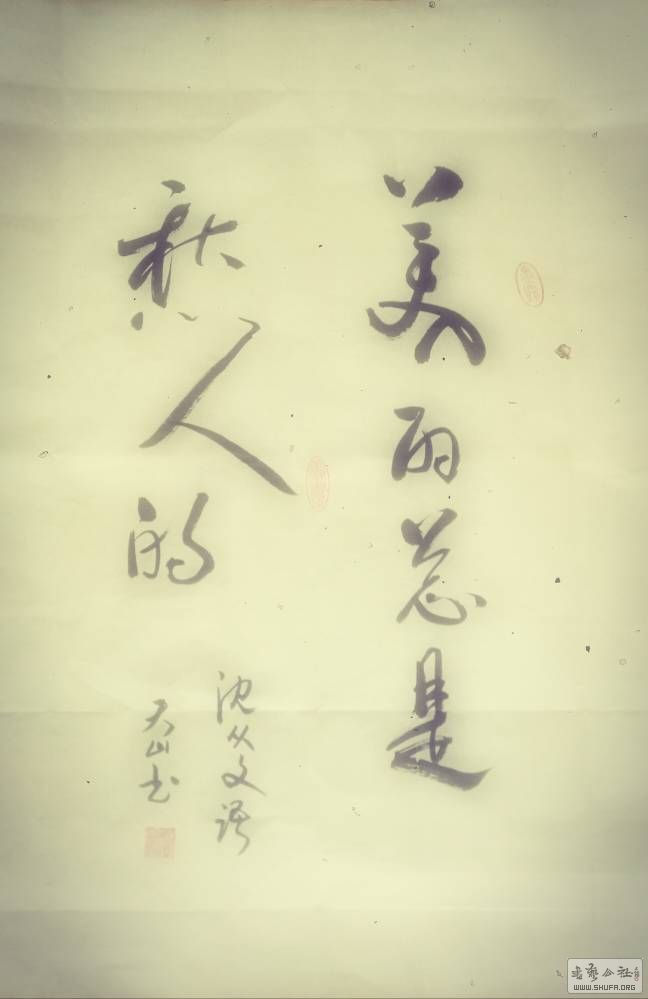 美丽总是
愁人的
沈从文语
天山书
书艺公社
WWW.SHUFA.ORG